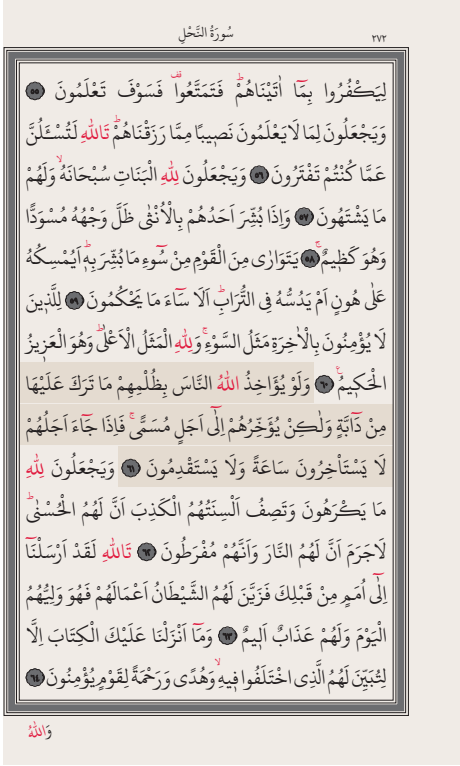 سُورَةُ النَّحْلِ ٢٧٢
لِيَكْفُرُوا بِمَٓا اٰتَيْنَاهُمْۜ فَتَمَتَّعُوا۠ فَسَوْفَ تَعْلَمُونَ ﴿٥٥﴾
وَيَجْعَلُونَ لِمَا لَا يَعْلَمُونَ نَصٖيبًا مِمَّا رَزَقْنَاهُمْۜ تَاللّٰهِ لَتُسْـَٔلُنَّ
عَمَّا كُنْتُمْ تَفْتَرُونَ ﴿٥٦﴾ وَيَجْعَلُونَ لِلّٰهِ الْبَنَاتِ سُبْحَانَهُۙ وَلَهُمْ
مَا يَشْتَهُونَ ﴿٥٧﴾ وَاِذَا بُشِّرَ اَحَدُهُمْ بِالْاُنْثٰى ظَلَّ وَجْهُهُ مُسْوَدًّا
وَهُوَ كَظٖيمٌۚ ﴿٥٨﴾ يَتَوَارٰى مِنَ الْقَوْمِ مِنْ سُٓوءِ مَا بُشِّرَ بِهٖۜ اَيُمْسِكُهُ
عَلٰى هُونٍ اَمْ يَدُسُّهُ فِي التُّرَابِۜ اَلَا سَٓاءَ مَا يَحْكُمُونَ ﴿٥٩﴾ لِلَّذٖينَ
لَا يُؤْمِنُونَ بِالْاٰخِرَةِ مَثَلُ السَّوْءِۚ وَلِلّٰهِ الْمَثَلُ الْاَعْلٰىۜ وَهُوَ الْعَزٖيزُ
الْحَكٖيمُ۟ ﴿٦٠﴾ وَلَوْ يُؤَاخِذُ اللّٰهُ النَّاسَ بِظُلْمِهِمْ مَا تَرَكَ عَلَيْهَا
مِنْ دَٓابَّةٍ وَلٰكِنْ يُؤَخِّرُهُمْ اِلٰٓى اَجَلٍ مُسَمًّىۚ فَاِذَا جَٓاءَ اَجَلُهُمْ
لَا يَسْتَأْخِرُونَ سَاعَةً وَلَا يَسْتَقْدِمُونَ ﴿٦١﴾ وَيَجْعَلُونَ لِلّٰهِ
مَا يَكْرَهُونَ وَتَصِفُ اَلْسِنَتُهُمُ الْكَذِبَ اَنَّ لَهُمُ الْحُسْنٰىۜ
لَا جَرَمَ اَنَّ لَهُمُ النَّارَ وَاَنَّهُمْ مُفْرَطُونَ ﴿٦٢﴾ تَاللّٰهِ لَقَدْ اَرْسَلْنَٓا
اِلٰٓى اُمَمٍ مِنْ قَبْلِكَ فَزَيَّنَ لَهُمُ الشَّيْطَانُ اَعْمَالَهُمْ فَهُوَ وَلِيُّهُمُ
الْيَوْمَ وَلَهُمْ عَذَابٌ اَلٖيمٌ ﴿٦٣﴾ وَمَٓا اَنْزَلْنَا عَلَيْكَ الْكِتَابَ اِلَّا
لِتُبَيِّنَ لَهُمُ الَّذِي اخْتَلَفُوا فٖيهِۙ وَهُدًى وَرَحْمَةً لِقَوْمٍ يُؤْمِنُونَ ﴿٦٤﴾
وَاللّٰهُ